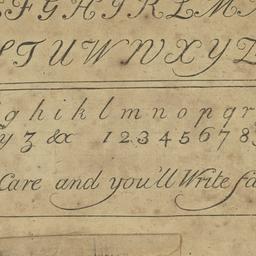 F G H I K L M
S T U W N X Y Z
g h i k l m n o p q r
y z &c 1 2 3 4 5 6 7 8
Care and you'll Write fa